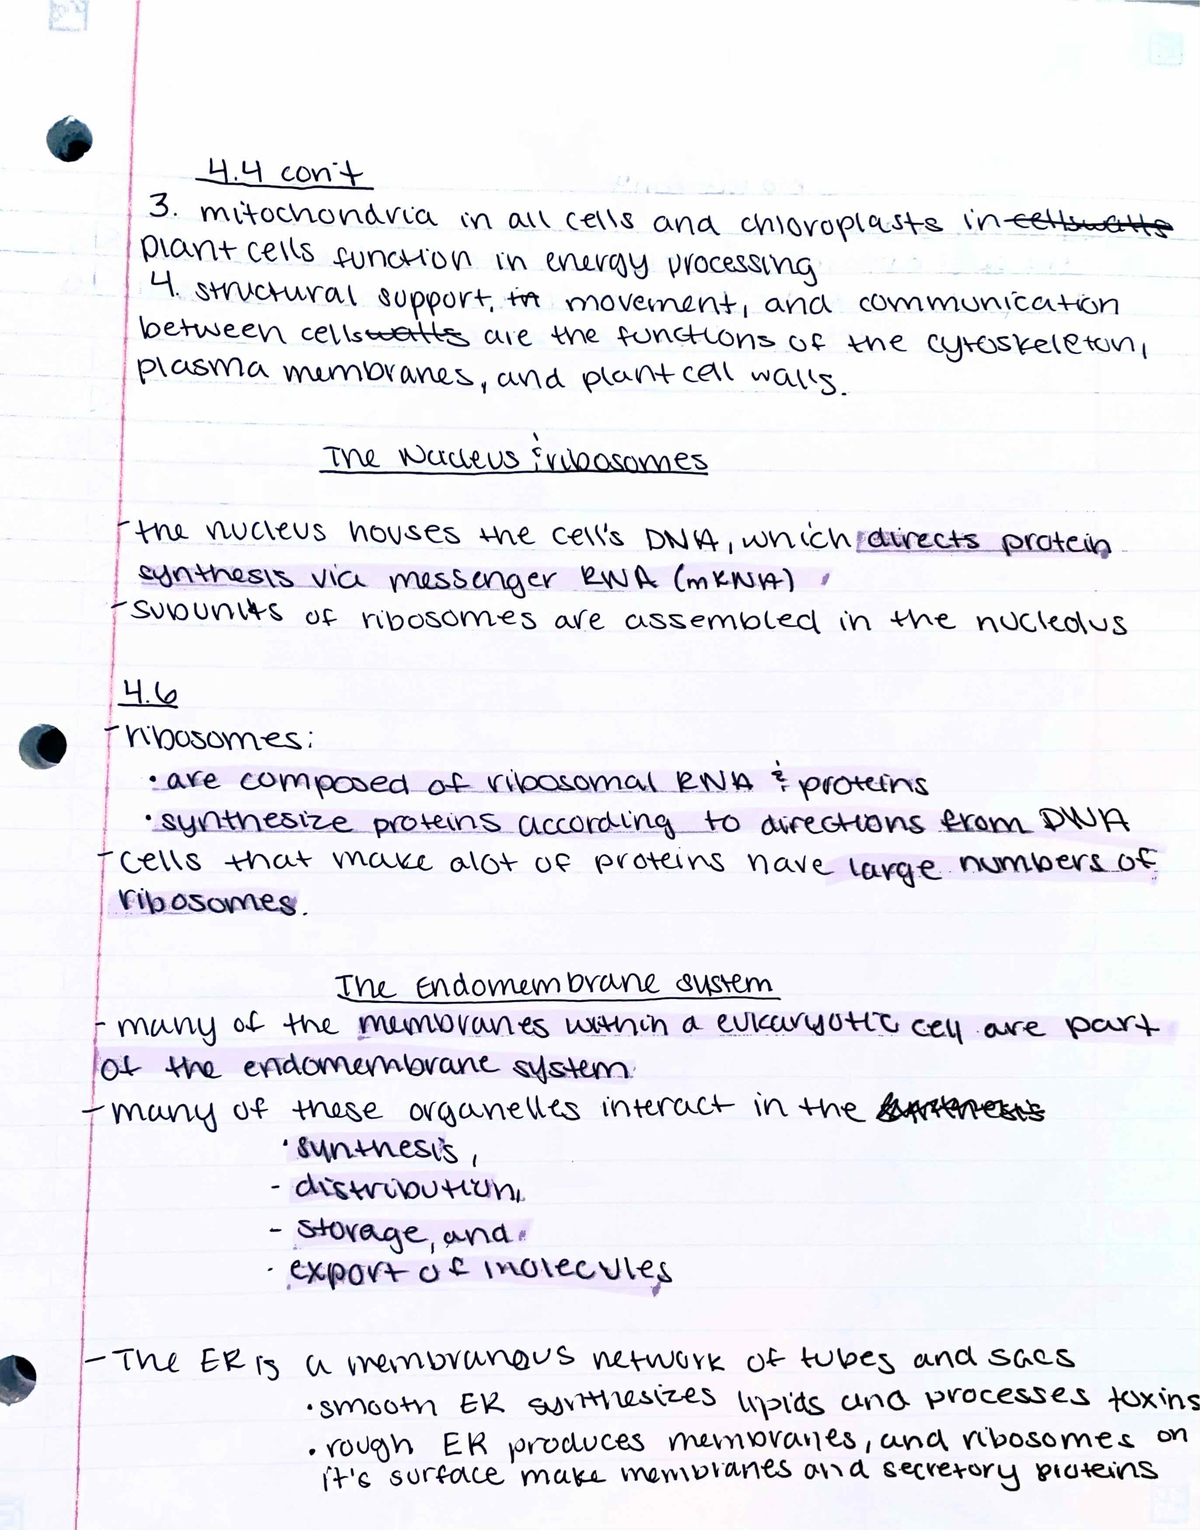 4.4 con't
3. mitochondria in all cells and chloroplasts in cellswalls
plant cells function in energy processing
4. structural support, in movement, and communication
between cellswalls are the functions of the cytoskeleton,
plasma membranes, and plant cell walls.
The Nucleus & ribosomes
- the nucleus houses the cell's DNA, which directs protein
synthesis via messenger RNA (mRNA)
- subunits of ribosomes are assembled in the nucleolus
4.6
- ribosomes:
• are composed of ribosomal RNA & proteins
• synthesize proteins according to directions from DNA
- cells that make alot of proteins have large numbers of
ribosomes.
The Endomembrane system
- many of the membranes within a eukaryotic cell are part
of the endomembrane system
- many of these organelles interact in the
• synthesis,
- distribution,
- storage, and
· export of molecules
- The ER is a membranous network of tubes and sacs
• smooth ER synthesizes lipids and processes toxins
• rough ER produces membranes, and ribosomes on
it's surface make membranes and secretory proteins